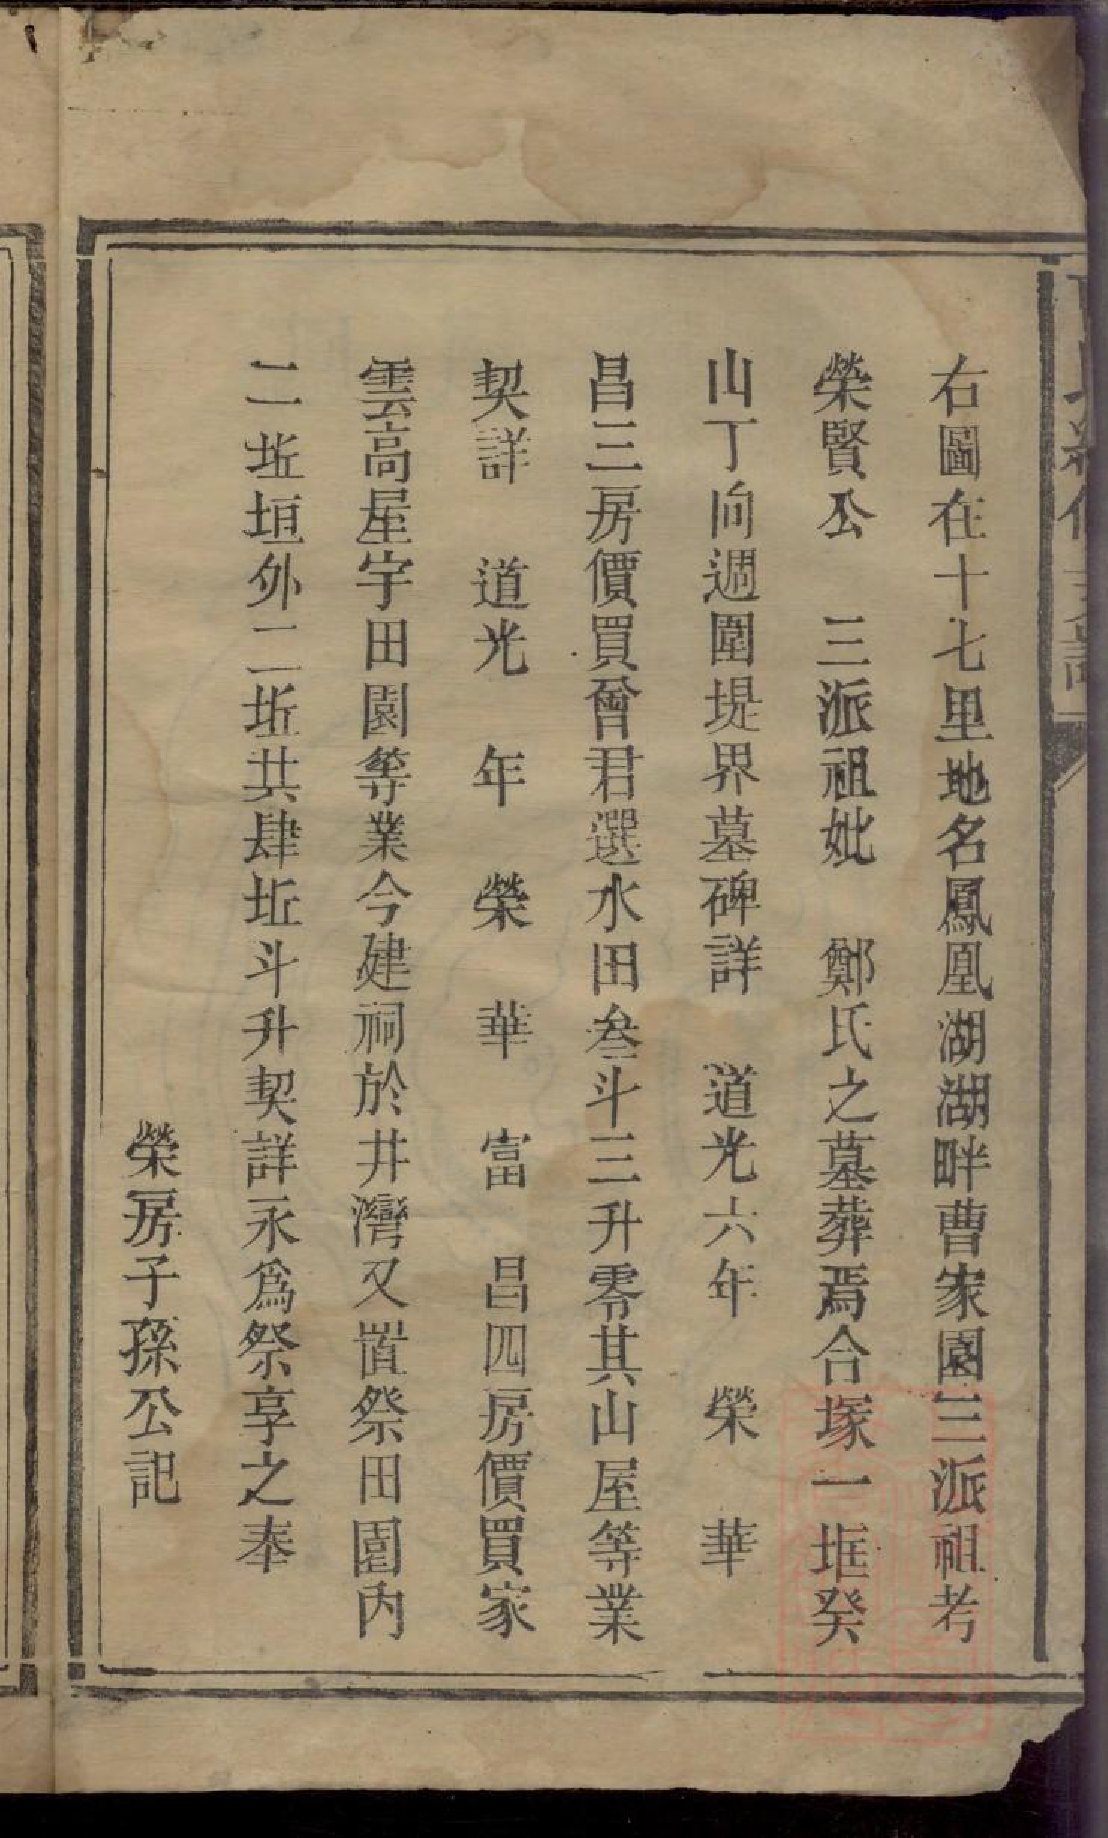 右圖在十七里地名鳳凰湖湖畔曹家園三派祖考
榮賢公　三派祖妣　鄭氏之墓葬焉合塚一框癸
山丁向週圍堤界墓碑詳　道光六年　榮　華
昌三房價買曾君選水田叁斗三升零其山屋等業
契詳　道光　年　榮　華　富　昌四房價買家
雲高屋宇田園等業今建祠於井灣又置祭田園內
二坵垣外二坵共肆坵斗升契詳永爲祭享之奉
榮房子孫公記